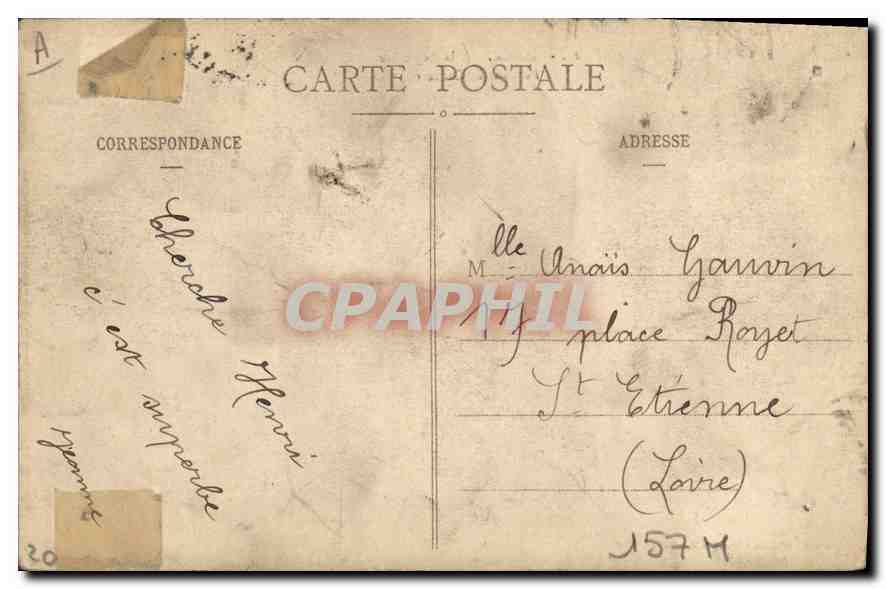 A
CARTE POSTALE
CORRESPONDANCE
ADRESSE
Cherche Henri
c'est superbe
Jeanne
Mlle Anaïs Gauvin
17 place Royet
St Etienne
(Loire)
CPAPHIL
157 M
20